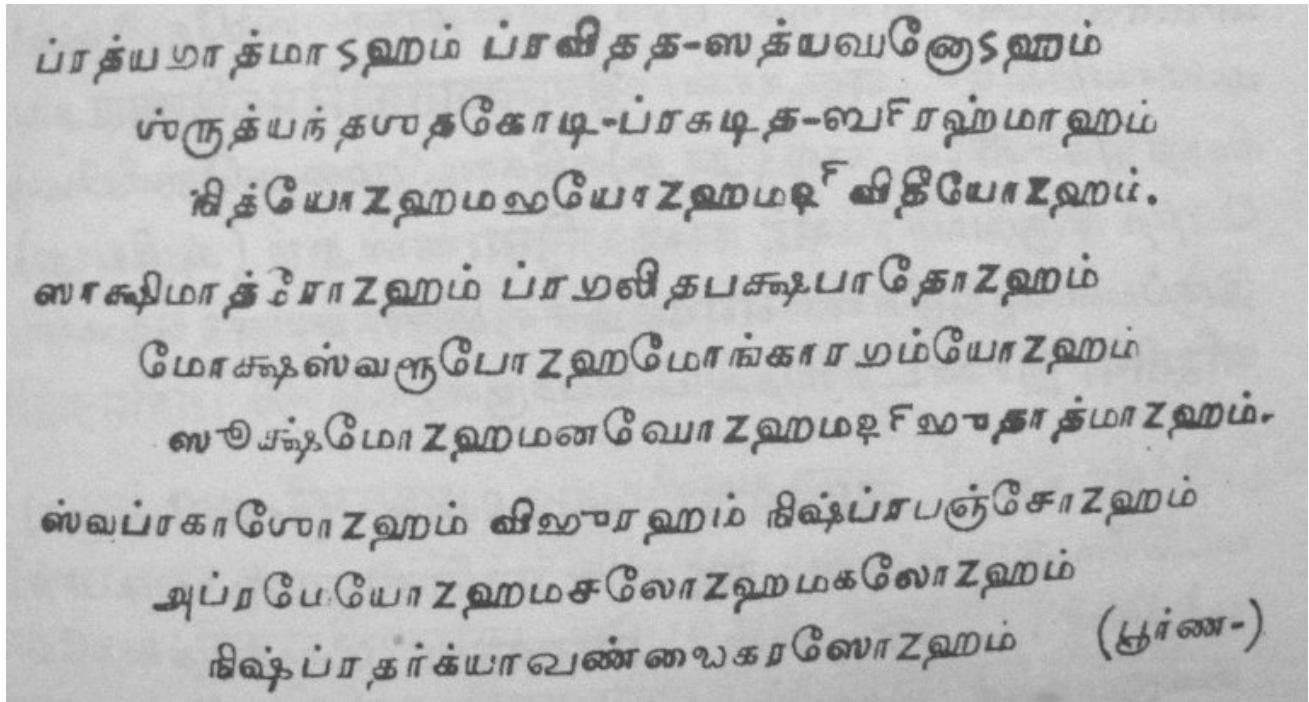 ப்ரத்ய𑌗𑌾த்மாऽஹம் ப்ரவிதத-ஸத்ய𑌘னோऽஹம்
ஶ்ருத்யந்தஶதகோடி-ப்ரகடித-𑌬𑍍ரஹ்மாஹம்
நித்யோZஹம𑌭யோZஹம𑌦𑍍விதீயோZஹம்.
ஸாக்ஷிமாத்ரோZஹம் ப்ர𑌗லிதபக்ஷபாதோZஹம்
மோக்ஷஸ்வரூபோZஹமோங்கார𑌗ம்யோZஹம்
ஸூக்ஷ்மோZஹமன𑌘𑍋Zஹம𑌦𑍍𑌭𑍁தாத்மாZஹம்.
ஸ்வப்ரகாஶோZஹம் வி𑌭𑍁ரஹம் நிஷ்ப்ரபஞ்சோZஹம்
அப்ரமேயோZஹமசலோZஹமகலோZஹம்
நிஷ்ப்ரதர்க்யா𑌖ண்𑌡𑍈கரஸோZஹம் (பூர்ண-)